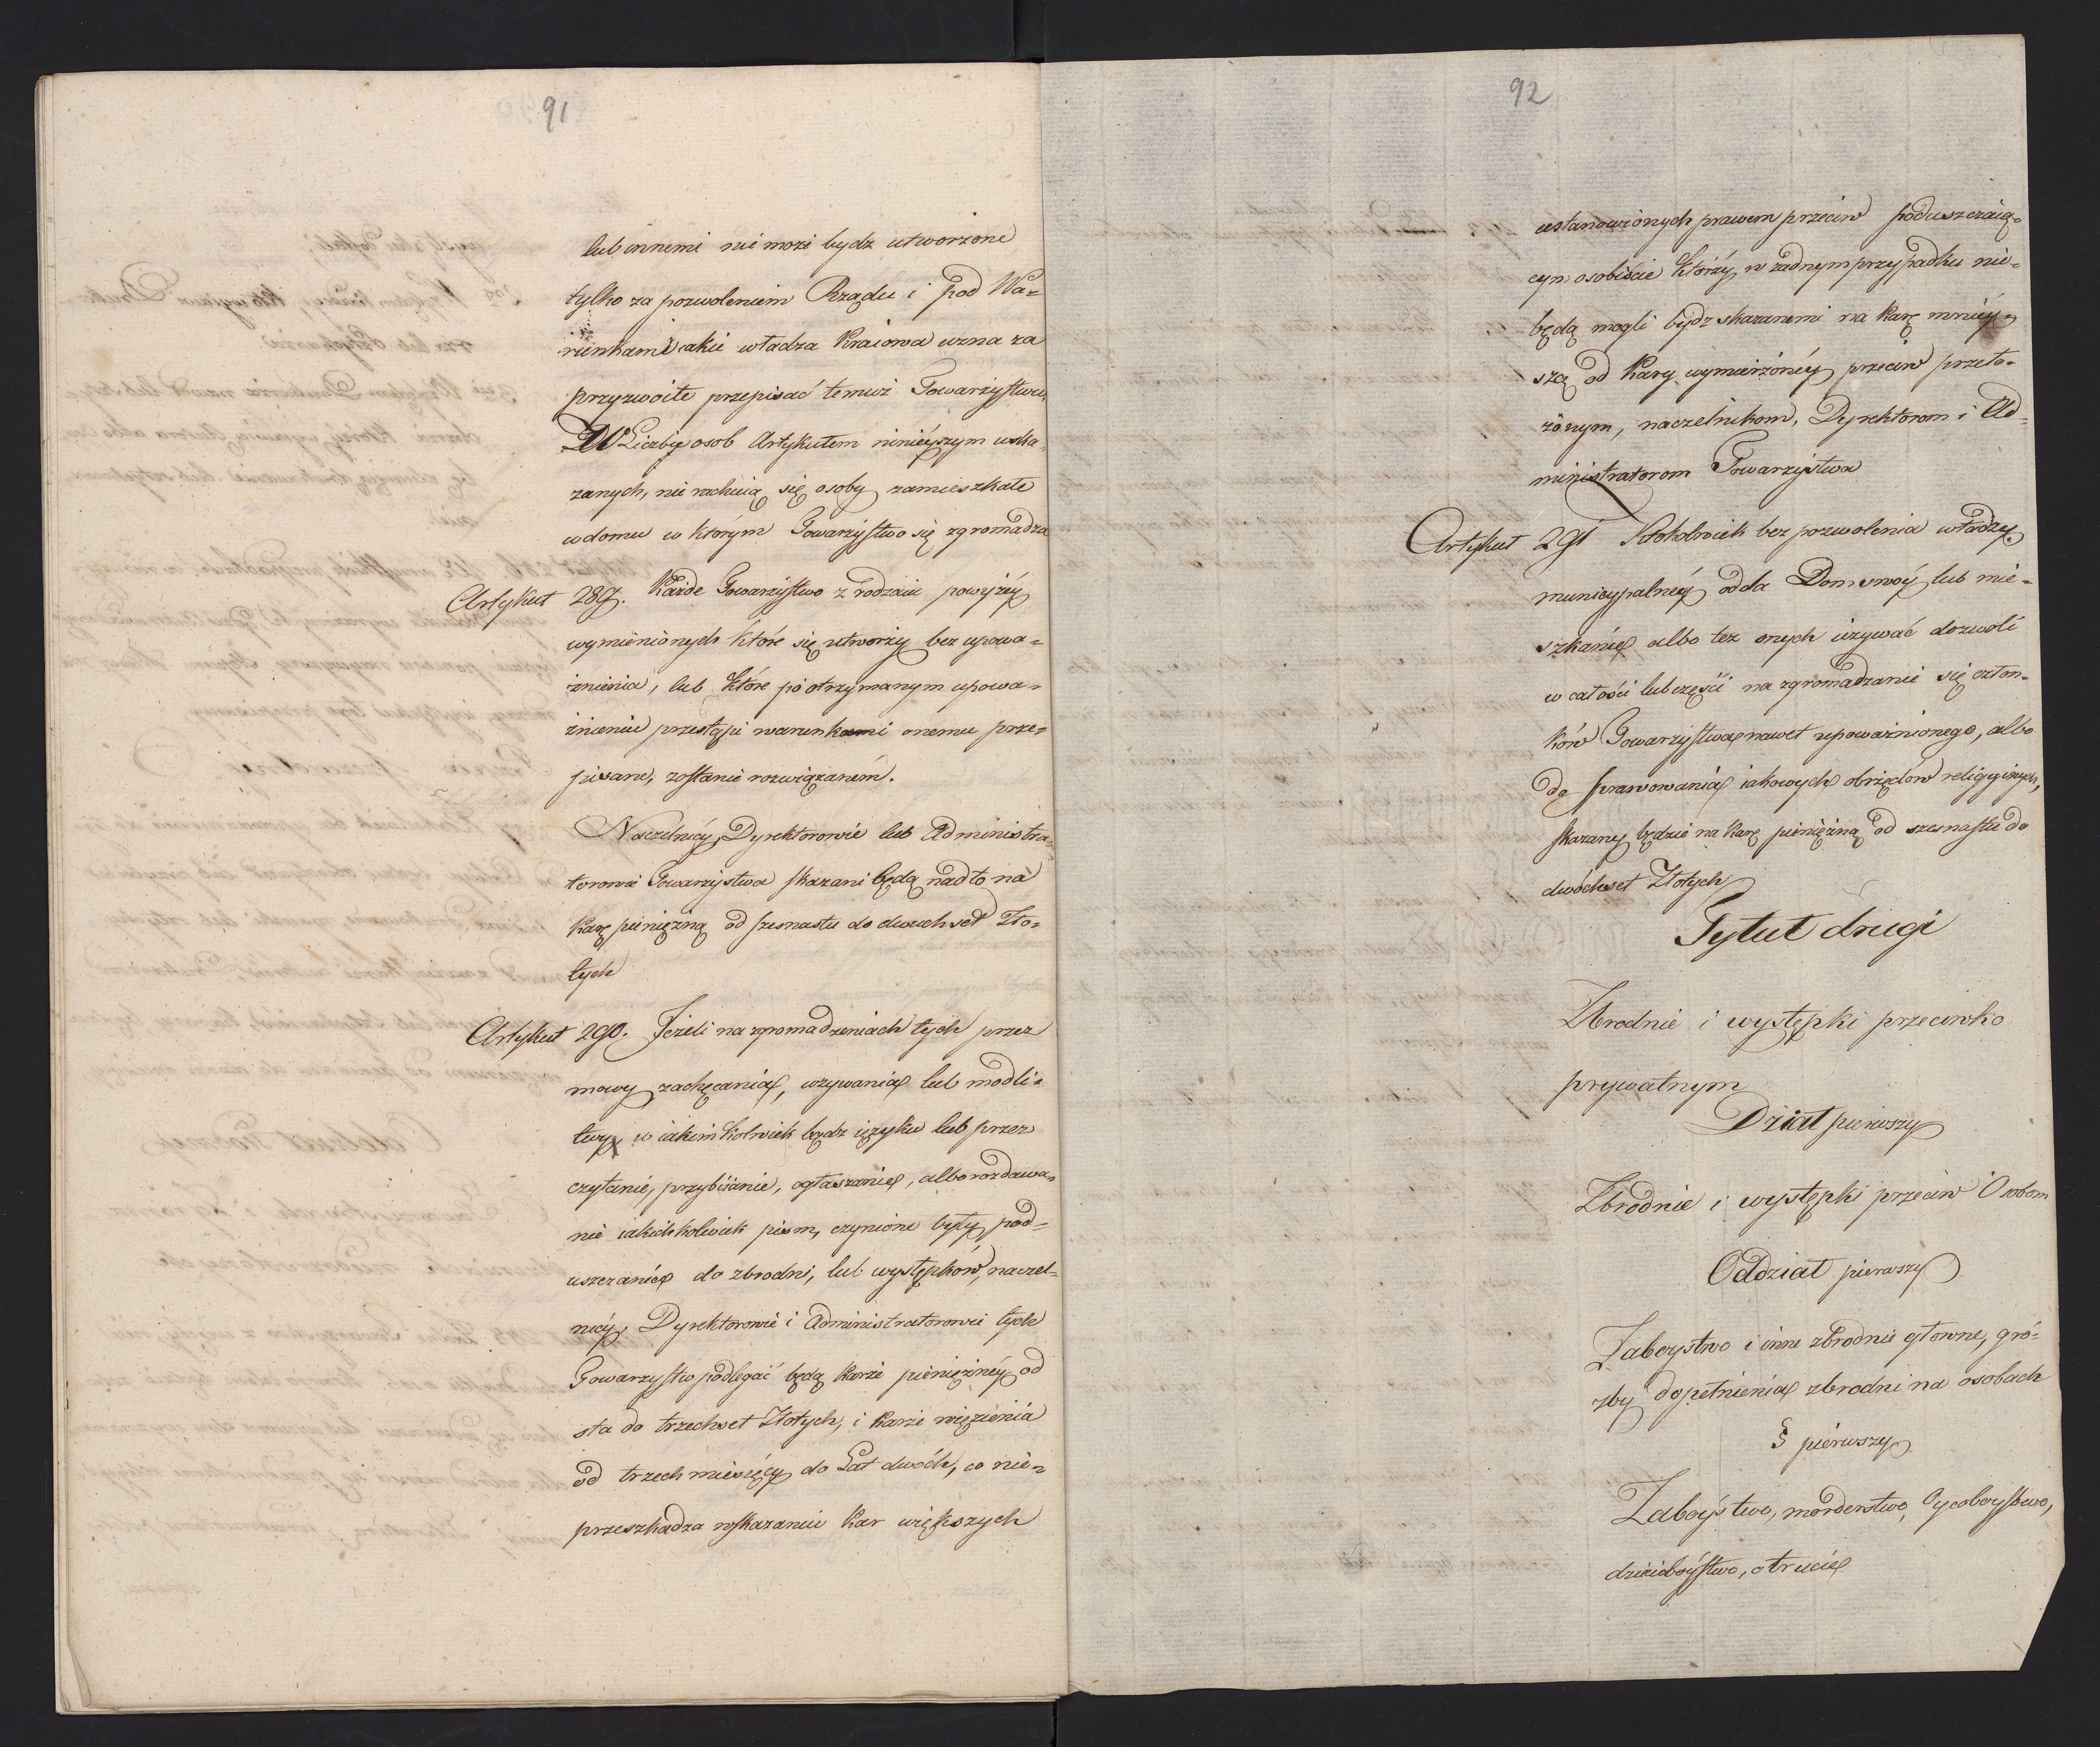 91
lub innemi nie może bydz utworzone
tylko za pozwoleniem Rządu i pod Wa-
runkami iakie władza Kraiowa uzna za
przyzwoite przepisać temuż Towarzystwu.
W Liczbie osob Artykułem ninieyszym wska-
zanych, nie rachuią się osoby zamieszkałe
w domu w którym Towarzystwo się zgromadza
Artykuł 289. Każde Towarzystwo z rodzaiu powyżéy
wymienionych które się utworzy bez upowa-
żnienia, lub które po otrzymanym upowa-
żnieniu przestąpi warunkami onemu prze-
pisane, zostanie rozwiązaném.
Naczelnicy, Dyrektorowie lub Administra-
torowie Towarzystwa skazani będą nadto na
karę pieniężną od szesnastu do dwuchset Zło-
tych
Artykuł 290. Jeżeli na zgromadzeniach tych przez
mowy zachęcania, wzywania lub modli-
twy w iakimkolwiek bądz ięzyku lub przez
czytanie, przybiianie, ogłaszanie, albo rozdawa-
nie iakichkolwiek pism, czynione były pod-
uszczanie do zbrodni, lub występków, naczel-
nicy, Dyrektorowie i Administratorowie tych
Towarzystw podlegać będą karze pieniężnéy od
sta do trzechset Złotych, i karze więzienia
od trzech miesięcy do Lat dwóch, co nie-
przeszkadza wskazaniu kar większych
92
ustanowionych prawem przeciw poduszczaią-
cym osobiście którzy w żadnym przypadku nie-
będą mogli bydz skazanemi na karę mniéy-
szą od Kary wymierzonéy przeciw przeło-
żonym, naczelnikom, Dyrektorom i Ad-
ministratorom Towarzystwa
Artykuł 291 Ktokolwiek bez pozwolenia władzy
municypalnéy odda Dom swóy lub mie-
szkanie albo też onych używać dozwoli
w całości lub części na zgromadzanie się człon-
ków Towarzystwa nawet upoważnionego, albo
do sprawowania iakowych obrzędów religyinych,
skazany będzie na karę pieniężną od szesnastu do
dwóchset Złotych
Tytuł drugi
Zbrodnie i występki przeciwko
prywatnym
Dział pierwszy
Zbrodnie i występki przeciw Osobom
Oddział pierwszy
Zaboystwo i inne zbrodnie głowne, gró-
zby dopełnienia zbrodni na osobach
§ pierwszy
Zabóystwo, morderstwo, Oycoboystwo,
dzieciobóystwo, otrucie